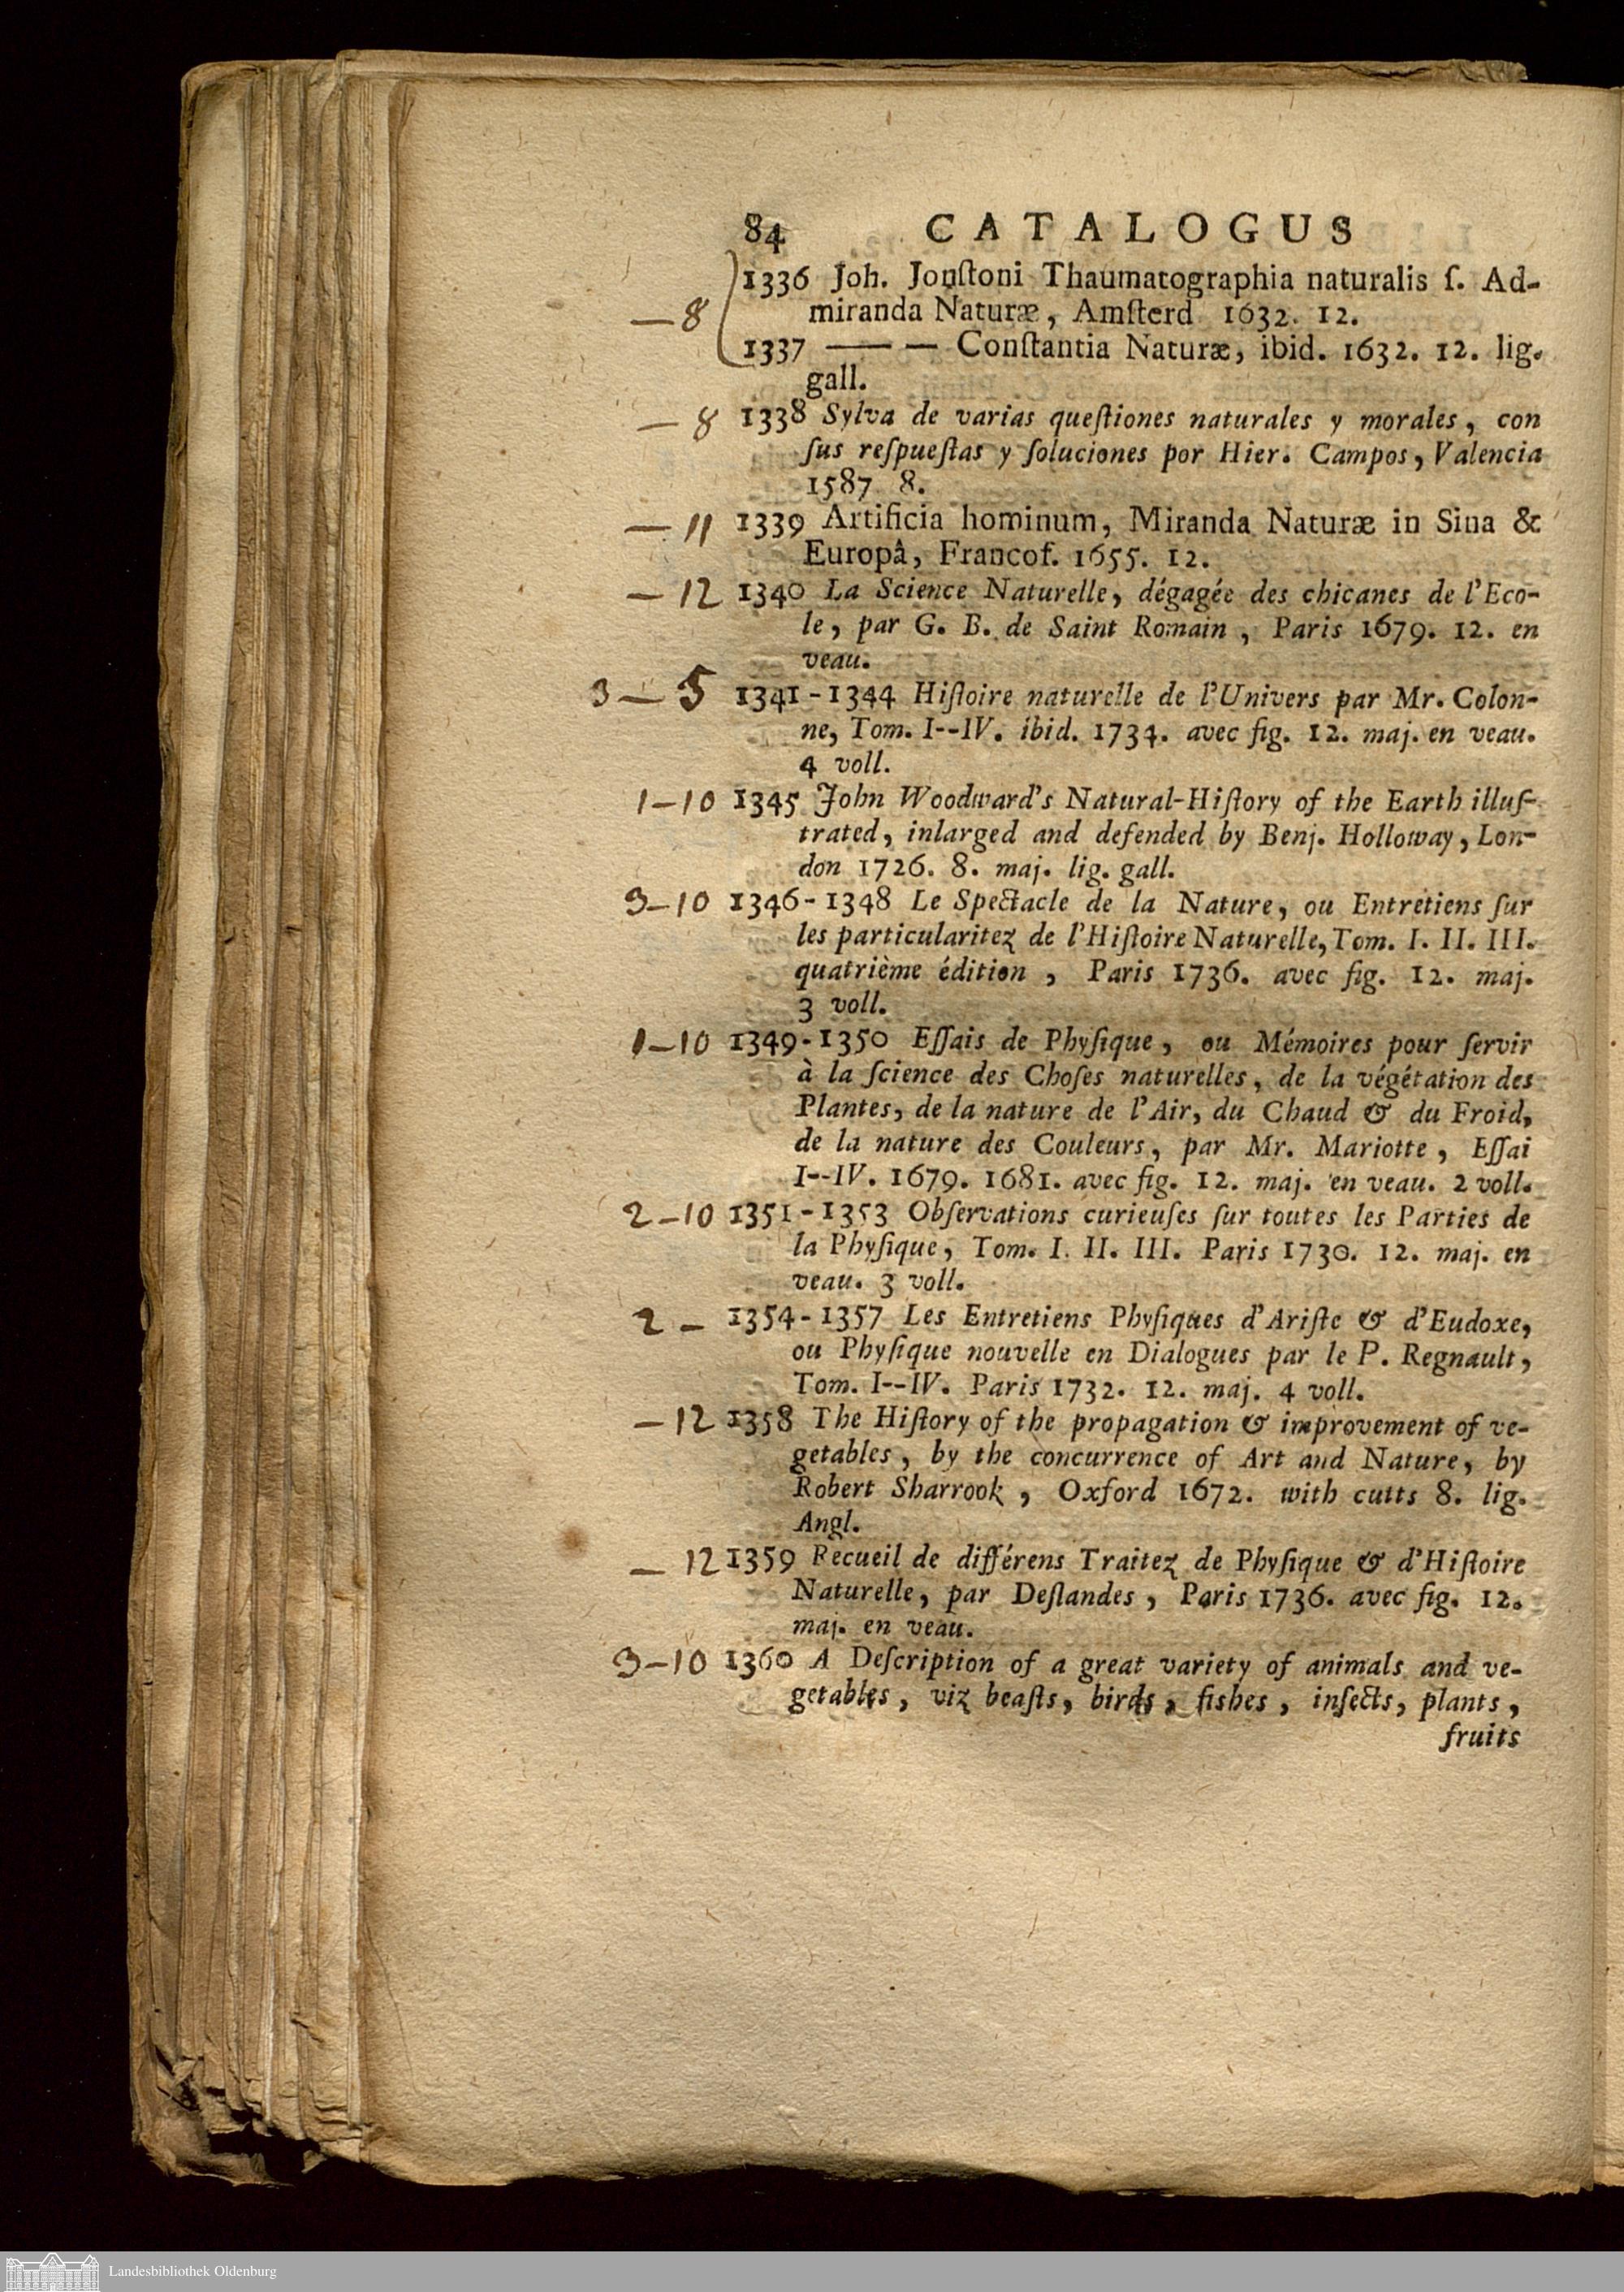 84 CATALOGUS
1336 Joh. Jonſtoni Thaumatographia naturalis ſ. Ad-
— 8 miranda Naturæ, Amſterd 1632. 12.
1337 —— — Conſtantia Naturæ, ibid. 1632. 12. lig.
gall.
— 8 1338 Sylva de varias queſtiones naturales y morales, con
ſus reſpueſtas y ſoluciones por Hier. Campos, Valencia
1587 8.
— 11 1339 Artificia hominum, Miranda Naturæ in Sina &
Europâ, Francof. 1655. 12.
— 12 1340 La Science Naturelle, dégagée des chicanes de l'Eco-
le, par G. B. de Saint Romain, Paris 1679. 12. en
veau.
3 — 5 1341-1344 Hiſtoire naturelle de l'Univers par Mr. Colon-
ne, Tom. I--IV. ibid. 1734. avec fig. 12. maj. en veau.
4 voll.
1—10 1345 John Woodward's Natural-Hiſtory of the Earth illuſ-
trated, inlarged and defended by Benj. Holloway, Lon-
don 1726. 8. maj. lig. gall.
3—10 1346-1348 Le Spectacle de la Nature, ou Entretiens ſur
les particularitez de l'Hiſtoire Naturelle, Tom. I. II. III.
quatrième édition, Paris 1736. avec fig. 12. maj.
3 voll.
1—10 1349-1350 Eſſais de Phyſique, ou Mémoires pour ſervir
à la ſcience des Choſes naturelles, de la végétation des
Plantes, de la nature de l'Air, du Chaud & du Froid,
de la nature des Couleurs, par Mr. Mariotte, Eſſai
I--IV. 1679. 1681. avec fig. 12. maj. en veau. 2 voll.
2—10 1351-1353 Obſervations curieuſes ſur toutes les Parties de
la Phyſique, Tom. I. II. III. Paris 1730. 12. maj. en
veau. 3 voll.
2 — 1354-1357 Les Entretiens Phyſiques d'Ariſte & d'Eudoxe,
ou Phyſique nouvelle en Dialogues par le P. Regnault,
Tom. I--IV. Paris 1732. 12. maj. 4 voll.
— 12 1358 The Hiſtory of the propagation & improvement of ve-
getables, by the concurrence of Art and Nature, by
Robert Sharrook, Oxford 1672. with cutts 8. lig.
Angl.
— 12 1359 Recueil de différens Traitez de Phyſique & d'Hiſtoire
Naturelle, par Deſlandes, Paris 1736. avec fig. 12.
maj. en veau.
3—10 1360 A Deſcription of a great variety of animals and ve-
getables, viz beaſts, birds, fiſhes, inſects, plants,
fruits
Landesbibliothek Oldenburg